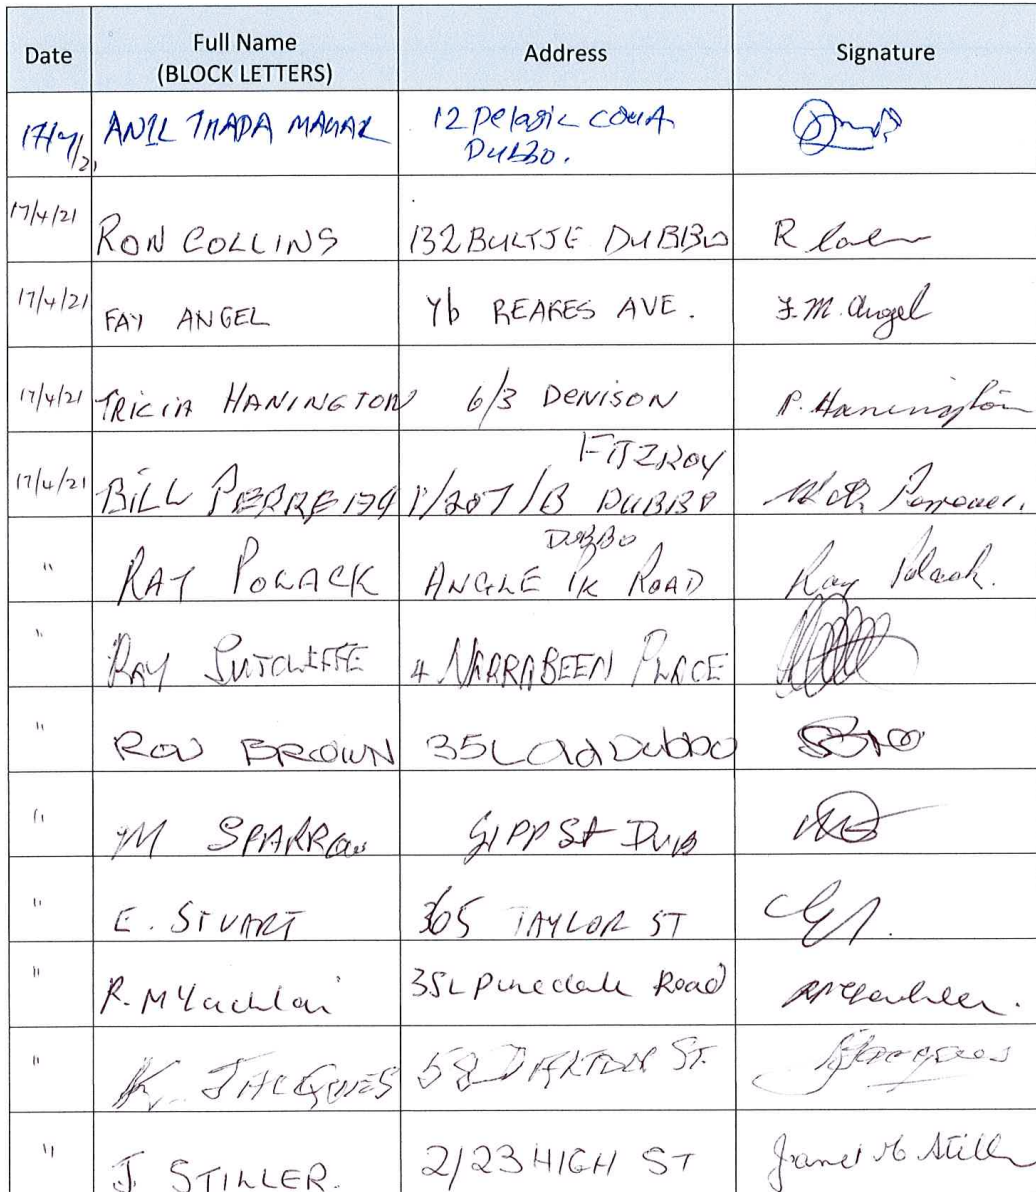 Date Full Name (BLOCK LETTERS) Address Signature
17/4/21 ANIL THAPA MAGAR 12 Pelagic court
DUBBO.
17/4/21 RON COLLINS 132 BULTJE DUBBO R
17/4/21 FAY ANGEL REAKES AVE. F.M. Angel
17/4/21 TRICIA HANINGTON 6/3 DENISON P. Hanington
FITZROY
17/4/21 BILL DUBBO
DUBBO
" RAY POLACK ANGLE PK ROAD Ray Polack.
" RAY SUTCLIFFE 4 NARRABEEN PLACE
" ROD BROWN 35L Old Dubbo
" M SPARROW GIPP St DUB
" E. STUART 365 TAYLOR ST
" R. McLachlan 35L Pinedale Road
" K. JACQUES 58 ST.
" J STILLER. 2/23 HIGH ST Janet M Stiller